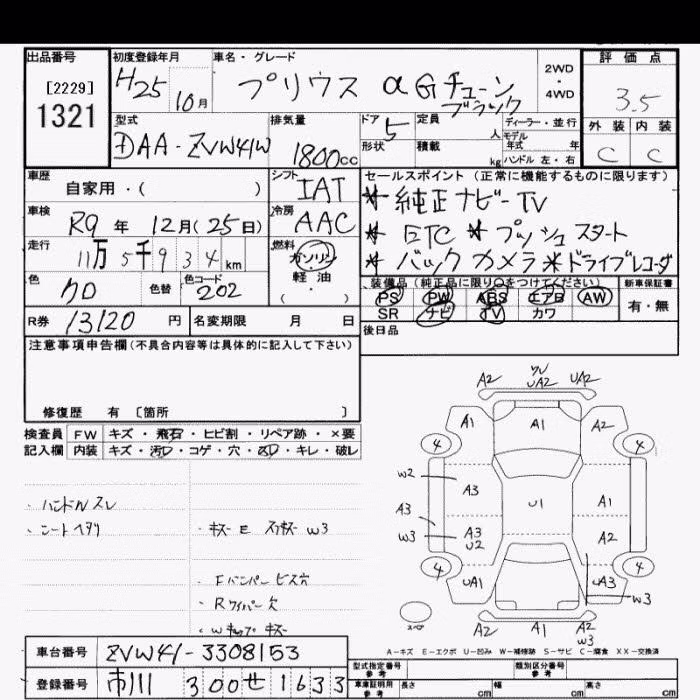 出品番号
[2229]
1321
初度登録年月
H25 10月
車名・グレード
プリウス αGチューン
ブラック
2WD
・
4WD
評価点
3.5
外装 内装
C C
型式
DAA-ZVW41W
排気量
1800cc
ドア 5
形状
定員 人
積載 kg
ディーラー・並行
モデル
年式 年
ハンドル 左・右
車歴
自家用・( )
シフト
IAT
車検
R9年 12月(25日)
冷房
AAC
走行
11万5千934km
燃料
ガソリン
軽油
( ・ )
色
クロ
色替
色コード
202
R券 13120円
名変期限 月 日
セールスポイント(正常に機能するものに限ります)
* 純正ナビーTV
* ETC * プッシュスタート
* バックカメラ * ドライブレコーダ
装備品(純正品に限り○をつけてください)
PS PW ABS エアB AW
SR ナビ TV カワ
新車保証書
有・無
後日品
注意事項申告欄(不具合内容等は具体的に記入して下さい)
修復歴 有 〔箇所 〕
検査員 FW キズ・飛石・ヒビ割・リペア跡・×要
記入欄 内装 キズ・汚れ・コゲ・穴・スレ・キレ・破レ
・ハンドルスレ
・シートヘタリ
・キズ E スリキズ W3
・Fバンパービス穴
・Rワイパー欠
・Wキャップキズ
A2 UA2 UA2
A1 A1 A2
4 4
W2 A3 U1 A1
A3
W3 A3 U2 A2
4 4
UA1 UA3
W3
スペア
A2 A1 A2
W3
A-キズ E-エクボ U-凹み W-補修跡 S-サビ C-腐食 XX-交換済
車台番号 ZVW41-3308153
登録番号 市川 300 せ 1633
型式指定番号 参考
類別区分番号 参考
車庫証明用 参考 長さ cm 幅 cm 高さ cm